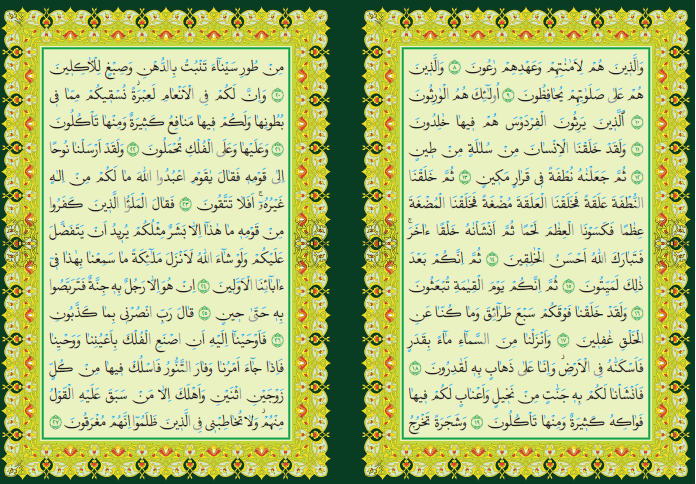 وَالَّذِينَ هُمْ لِاَمَانَاتِهِمْ وَعَهْدِهِمْ رَاعُونَ ٨ وَالَّذِينَ
هُمْ عَلٰى صَلَوَاتِهِمْ يُحَافِظُونَ ٩ اُولٰئِكَ هُمُ الْوَارِثُونَ
١٠ الَّذِينَ يَرِثُونَ الْفِرْدَوْسَ هُمْ فِيهَا خَالِدُونَ
١١ وَلَقَدْ خَلَقْنَا الْاِنْسَانَ مِنْ سُلَالَةٍ مِنْ طِينٍ
١٢ ثُمَّ جَعَلْنَاهُ نُطْفَةً فِى قَرَارٍ مَكِينٍ ١٣ ثُمَّ خَلَقْنَا
النُّطْفَةَ عَلَقَةً فَخَلَقْنَا الْعَلَقَةَ مُضْغَةً فَخَلَقْنَا الْمُضْغَةَ
عِظَامًا فَكَسَوْنَا الْعِظَامَ لَحْمًا ثُمَّ اَنْشَأْنَاهُ خَلْقًا ءَاخَرَ
فَتَبَارَكَ اللهُ اَحْسَنُ الْخَالِقِينَ ١٤ ثُمَّ اِنَّكُمْ بَعْدَ
ذٰلِكَ لَمَيِّتُونَ ١٥ ثُمَّ اِنَّكُمْ يَوْمَ الْقِيٰمَةِ تُبْعَثُونَ
١٦ وَلَقَدْ خَلَقْنَا فَوْقَكُمْ سَبْعَ طَرَآئِقَ وَمَا كُنَّا عَنِ
الْخَلْقِ غَافِلِينَ ١٧ وَاَنْزَلْنَا مِنَ السَّمَآءِ مَآءً بِقَدَرٍ
فَاَسْكَنَّاهُ فِى الْاَرْضِ وَاِنَّا عَلٰى ذَهَابٍ بِهِ لَقَادِرُونَ ١٨
فَاَنْشَأْنَا لَكُمْ بِهِ جَنَّاتٍ مِنْ نَخِيلٍ وَاَعْنَابٍ لَكُمْ فِيهَا
فَوَاكِهُ كَثِيرَةٌ وَمِنْهَا تَأْكُلُونَ ١٩ وَشَجَرَةً تَخْرُجُ
مِنْ طُورِ سَيْنَآءَ تَنْبُتُ بِالدُّهْنِ وَصِبْغٍ لِلْاٰكِلِينَ
٢٠ وَاِنَّ لَكُمْ فِى الْاَنْعَامِ لَعِبْرَةً نُسْقِيكُمْ مِمَّا فِى
بُطُونِهَا وَلَكُمْ فِيهَا مَنَافِعُ كَثِيرَةٌ وَمِنْهَا تَأْكُلُونَ
٢١ وَعَلَيْهَا وَعَلَى الْفُلْكِ تُحْمَلُونَ ٢٢ وَلَقَدْ اَرْسَلْنَا نُوحًا
اِلٰى قَوْمِهِ فَقَالَ يَاقَوْمِ اعْبُدُوا اللهَ مَا لَكُمْ مِنْ اِلٰهٍ
غَيْرُهُ اَفَلَا تَتَّقُونَ ٢٣ فَقَالَ الْمَلَؤُا الَّذِينَ كَفَرُوا
مِنْ قَوْمِهِ مَا هٰذَآ اِلَّا بَشَرٌ مِثْلُكُمْ يُرِيدُ اَنْ يَتَفَضَّلَ
عَلَيْكُمْ وَلَوْ شَآءَ اللهُ لَاَنْزَلَ مَلٰٓئِكَةً مَا سَمِعْنَا بِهٰذَا فِى
ءَابَآئِنَا الْاَوَّلِينَ ٢٤ اِنْ هُوَ اِلَّا رَجُلٌ بِهِ جِنَّةٌ فَتَرَبَّصُوا
بِهِ حَتّٰى حِينٍ ٢٥ قَالَ رَبِّ انْصُرْنِى بِمَا كَذَّبُونِ
٢٦ فَاَوْحَيْنَآ اِلَيْهِ اَنِ اصْنَعِ الْفُلْكَ بِاَعْيُنِنَا وَوَحْيِنَا
فَاِذَا جَآءَ اَمْرُنَا وَفَارَ التَّنُّورُ فَاسْلُكْ فِيهَا مِنْ كُلٍّ
زَوْجَيْنِ اثْنَيْنِ وَاَهْلَكَ اِلَّا مَنْ سَبَقَ عَلَيْهِ الْقَوْلُ
مِنْهُمْ وَلَا تُخَاطِبْنِى فِى الَّذِينَ ظَلَمُوا اِنَّهُمْ مُغْرَقُونَ ٢٧